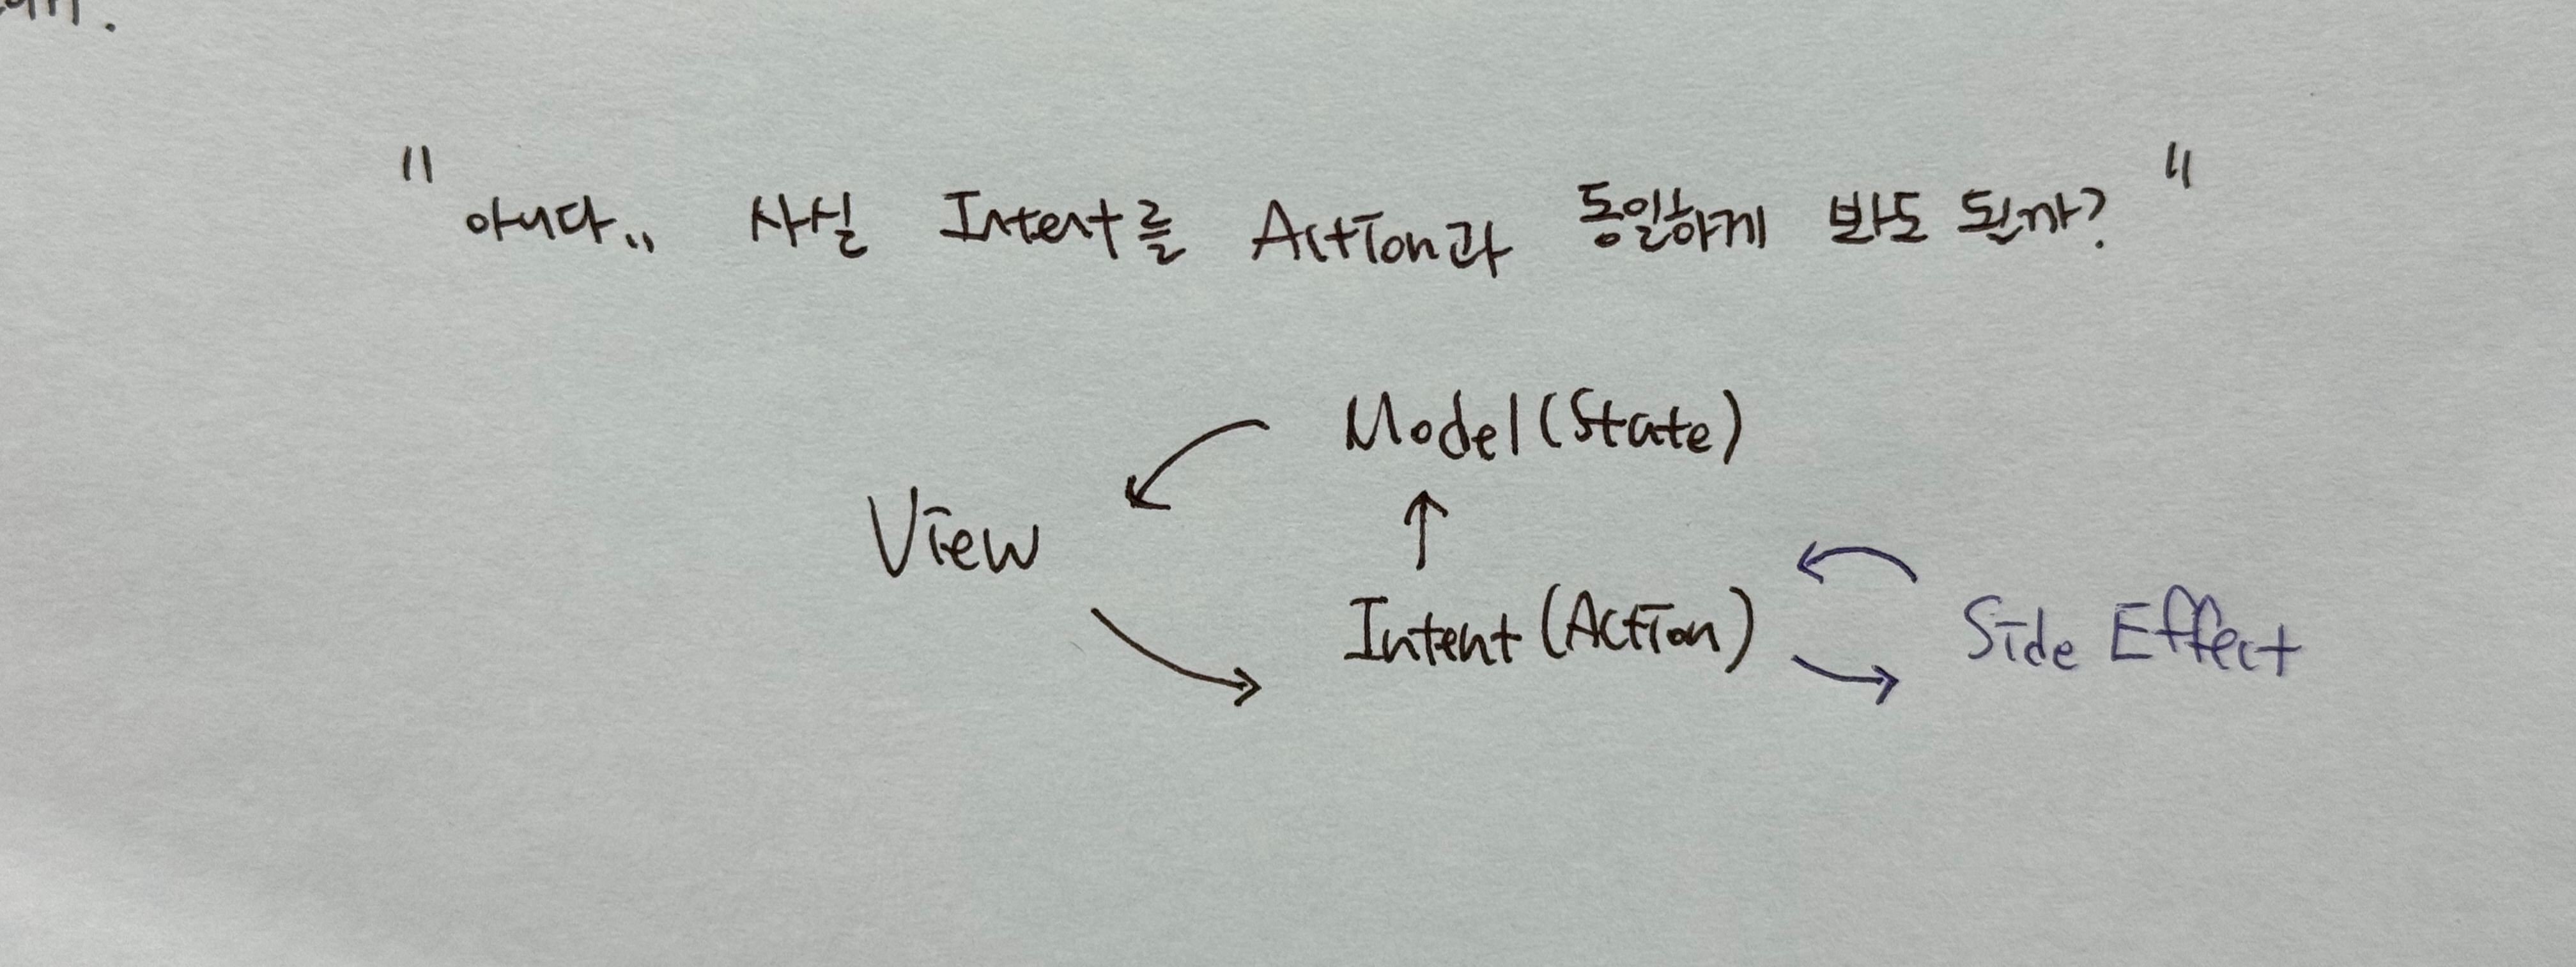 " 아니다.. 사실 Intent를 Action과 동일하게 봐도 될까? "
Model(State)
View
Intent (Action)
Side Effect